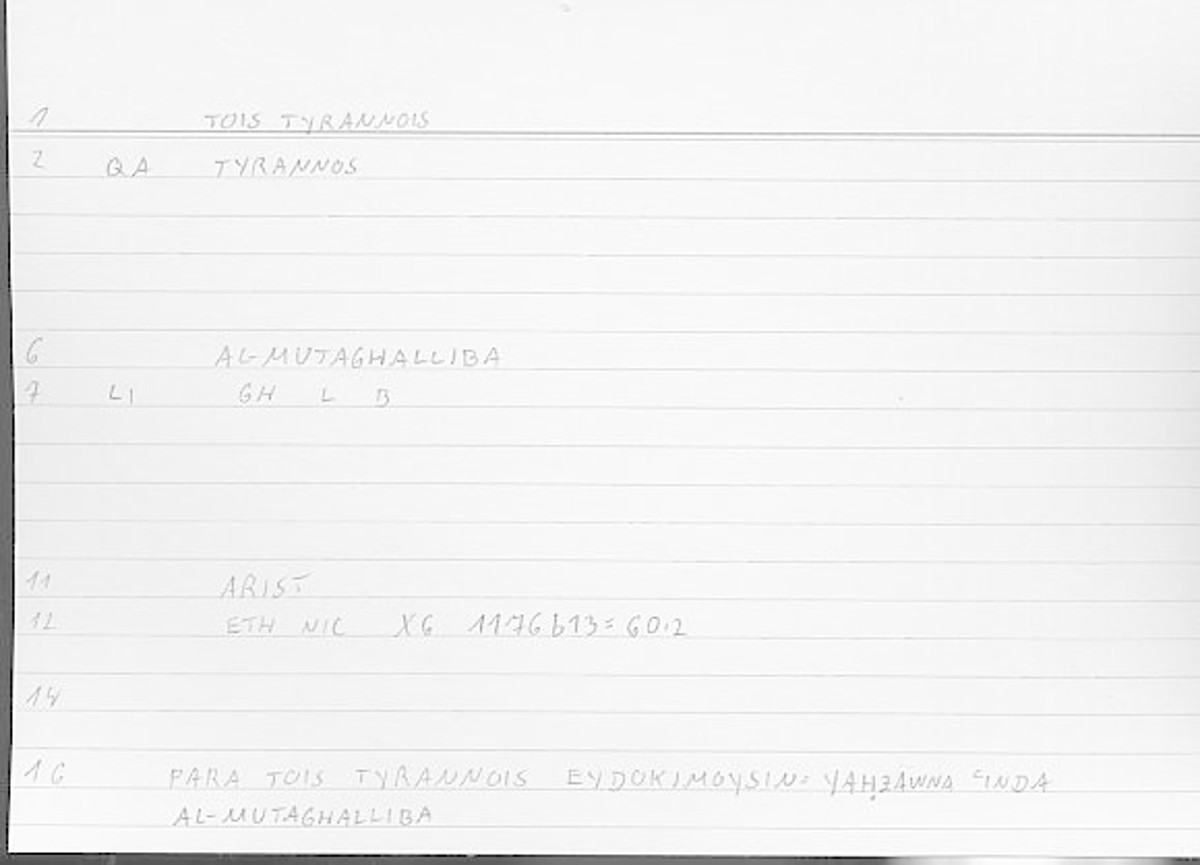 1 TOIS TYRANNOIS
2 QA TYRANNOS
6 AL-MUTAGHALLIBA
7 LI GH L B
11 ARIST
12 ETH NIC X6 1176b13=60.2
14
16 PARA TOIS TYRANNOIS EYDOKIMOYSIN= YAḤẒAWNA ʿINDA
AL-MUTAGHALLIBA